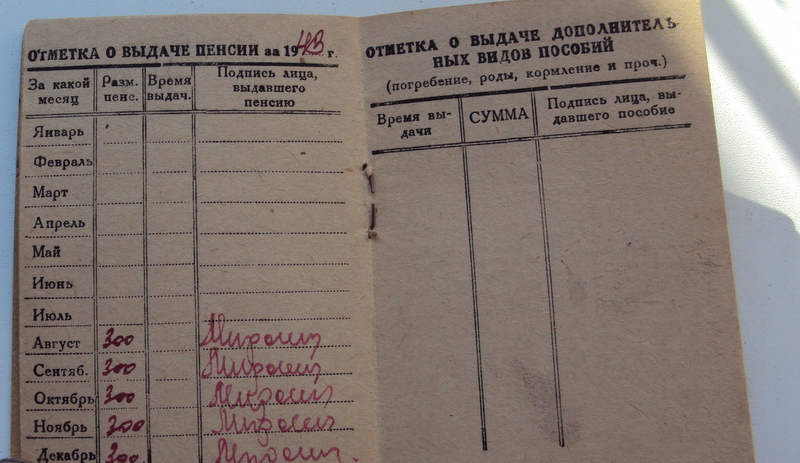 ОТМЕТКА О ВЫДАЧЕ ПЕНСИИ за 1943 г.
За какой месяц
Разм. пенс.
Время выдач.
Подпись лица, выдавшего пенсию
Январь
Февраль
Март
Апрель
Май
Июнь
Июль
Август 300
Сентяб. 300
Октябрь 300
Ноябрь 300
Декабрь 300
ОТМЕТКА О ВЫДАЧЕ ДОПОЛНИТЕЛЬ-
НЫХ ВИДОВ ПОСОБИЙ
(погребение, роды, кормление и проч.)
Время вы-
дачи
СУММА
Подпись лица, вы-
давшего пособие